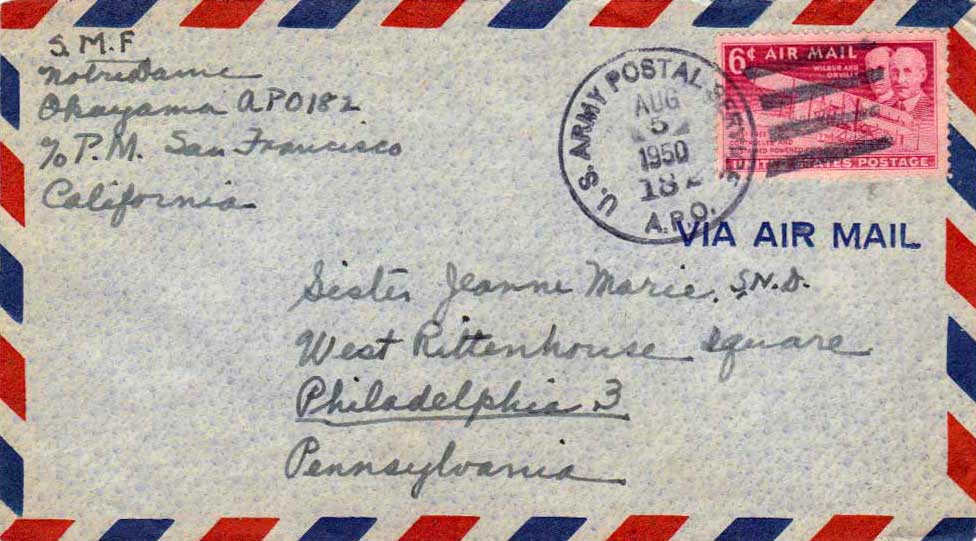 S.M.F
Notre Dame
Okayama APO 182
c/o P.M. San Francisco
California
U.S. ARMY POSTAL SERVICE
AUG
5
1950
182
A.P.O.
6¢ AIR MAIL
WILBUR AND
ORVILLE
UNITED STATES POSTAGE
VIA AIR MAIL
Sister Jeanne Marie, S.N.D.
West Rittenhouse square
Philadelphia 3
Pennsylvania